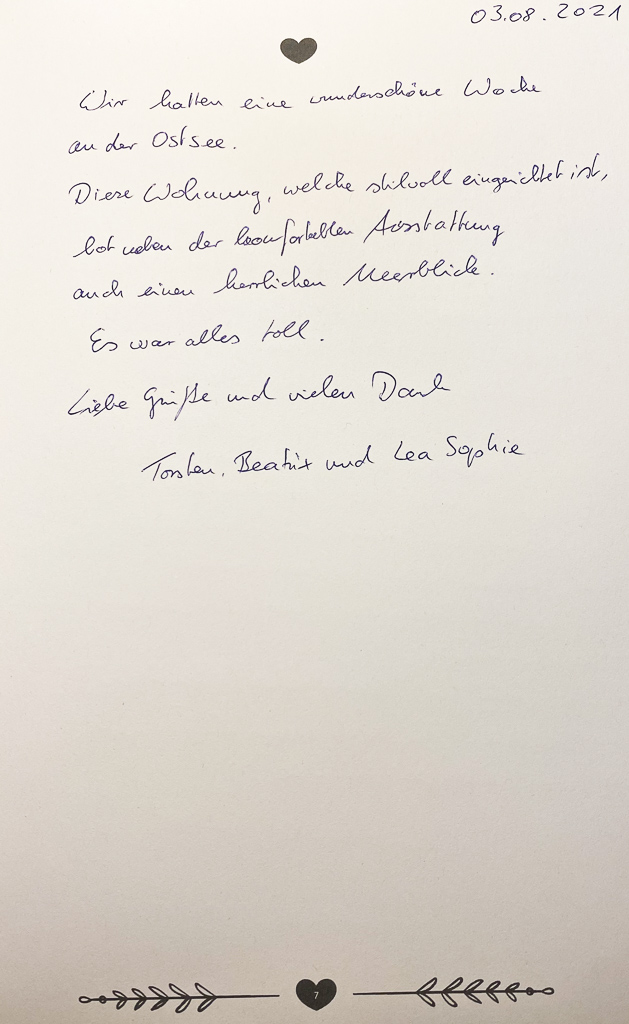 03.08.2021
Wir hatten eine wunderschöne Woche
an der Ostsee.
Diese Wohnung, welche stilvoll eingerichtet ist,
bot neben der komfortablen Ausstattung
auch einen herrlichen Meerblick.
Es war alles toll.
Liebe Grüße und vielen Dank
Torsten, Beatrix und Lea Sophie
7